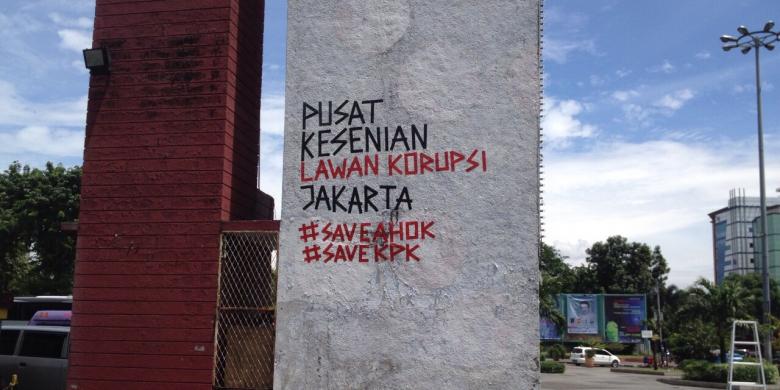 PUSAT
KESENIAN
LAWAN KORUPSI
JAKARTA
#SAVEAHOK
#SAVEKPK